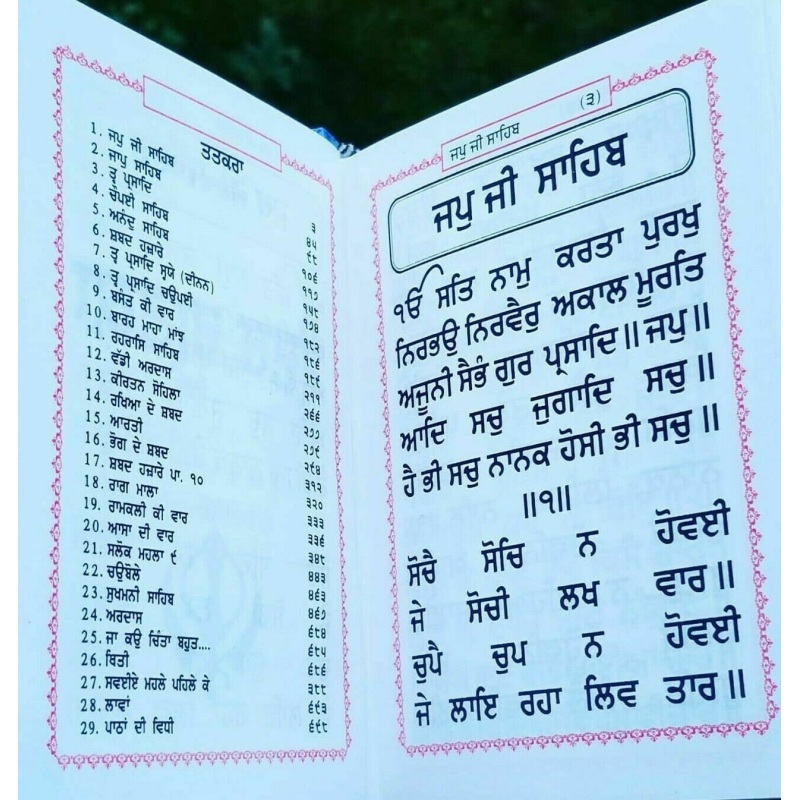 ਤਤਕਰਾ
1. ਜਪੁ ਜੀ ਸਾਹਿਬ ੩
2. ਜਾਪੁ ਸਾਹਿਬ ੪੫
3. ਤ੍ਵ ਪ੍ਰਸਾਦਿ
4. ਚੌਪਈ ਸਾਹਿਬ ੧੦੬
5. ਅਨੰਦੁ ਸਾਹਿਬ ੧੧੭
6. ਸ਼ਬਦ ਹਜ਼ਾਰੇ ੧੫੮
7. ਤ੍ਵ ਪ੍ਰਸਾਦਿ ਸ੍ਵਯੇ (ਦੀਨਨ) ੧੭੪
8. ਤ੍ਵ ਪ੍ਰਸਾਦਿ ਚਉਪਈ ੧੮੨
9. ਬਸੰਤ ਕੀ ਵਾਰ ੧੮੬
10. ਬਾਰਹ ਮਾਹਾ ਮਾਂਝ ੧੮੯
11. ਰਹਰਾਸਿ ਸਾਹਿਬ ੨੧੧
12. ਵੱਡੀ ਅਰਦਾਸ ੨੬੬
13. ਕੀਰਤਨ ਸੋਹਿਲਾ ੨੭੭
14. ਰਖਿਆ ਦੇ ਸ਼ਬਦ ੨੭੯
15. ਆਰਤੀ ੨੯੪
16. ਭੋਗ ਦੇ ਸ਼ਬਦ ੩੧੨
17. ਸ਼ਬਦ ਹਜ਼ਾਰੇ ਪਾ. ੧੦ ੩੨੦
18. ਰਾਗ ਮਾਲਾ ੩੩੩
19. ਰਾਮਕਲੀ ਕੀ ਵਾਰ ੩੩੬
20. ਆਸਾ ਦੀ ਵਾਰ ੩੪੮
21. ਸਲੋਕ ਮਹਲਾ ੯ ੪੪੩
22. ਚਉਬੋਲੇ ੪੬੩
23. ਸੁਖਮਨੀ ਸਾਹਿਬ ੪੬੭
24. ਅਰਦਾਸ ੬੮੪
25. ਜਾ ਕਉ ਚਿੰਤਾ ਬਹੁਤ.... ੬੮੫
26. ਥਿਤੀ ੬੮੬
27. ਸਵਈਏ ਮਹਲੇ ਪਹਿਲੇ ਕੇ ੩੮੮
28. ਲਾਵਾਂ ੬੯੩
29. ਪਾਠਾਂ ਦੀ ਵਿਧੀ ੬੯੮
ਜਪੁ ਜੀ ਸਾਹਿਬ (੩)
ਜਪੁ ਜੀ ਸਾਹਿਬ
ੴ ਸਤਿ ਨਾਮੁ ਕਰਤਾ ਪੁਰਖੁ
ਨਿਰਭਉ ਨਿਰਵੈਰੁ ਅਕਾਲ ਮੂਰਤਿ
ਅਜੂਨੀ ਸੈਭੰ ਗੁਰ ਪ੍ਰਸਾਦਿ॥ ਜਪੁ॥
ਆਦਿ ਸਚੁ ਜੁਗਾਦਿ ਸਚੁ॥
ਹੈ ਭੀ ਸਚੁ ਨਾਨਕ ਹੋਸੀ ਭੀ ਸਚੁ॥
॥੧॥
ਸੋਚੈ ਸੋਚਿ ਨ ਹੋਵਈ
ਜੇ ਸੋਚੀ ਲਖ ਵਾਰ॥
ਚੁਪੈ ਚੁਪ ਨ ਹੋਵਈ
ਜੇ ਲਾਇ ਰਹਾ ਲਿਵ ਤਾਰ॥